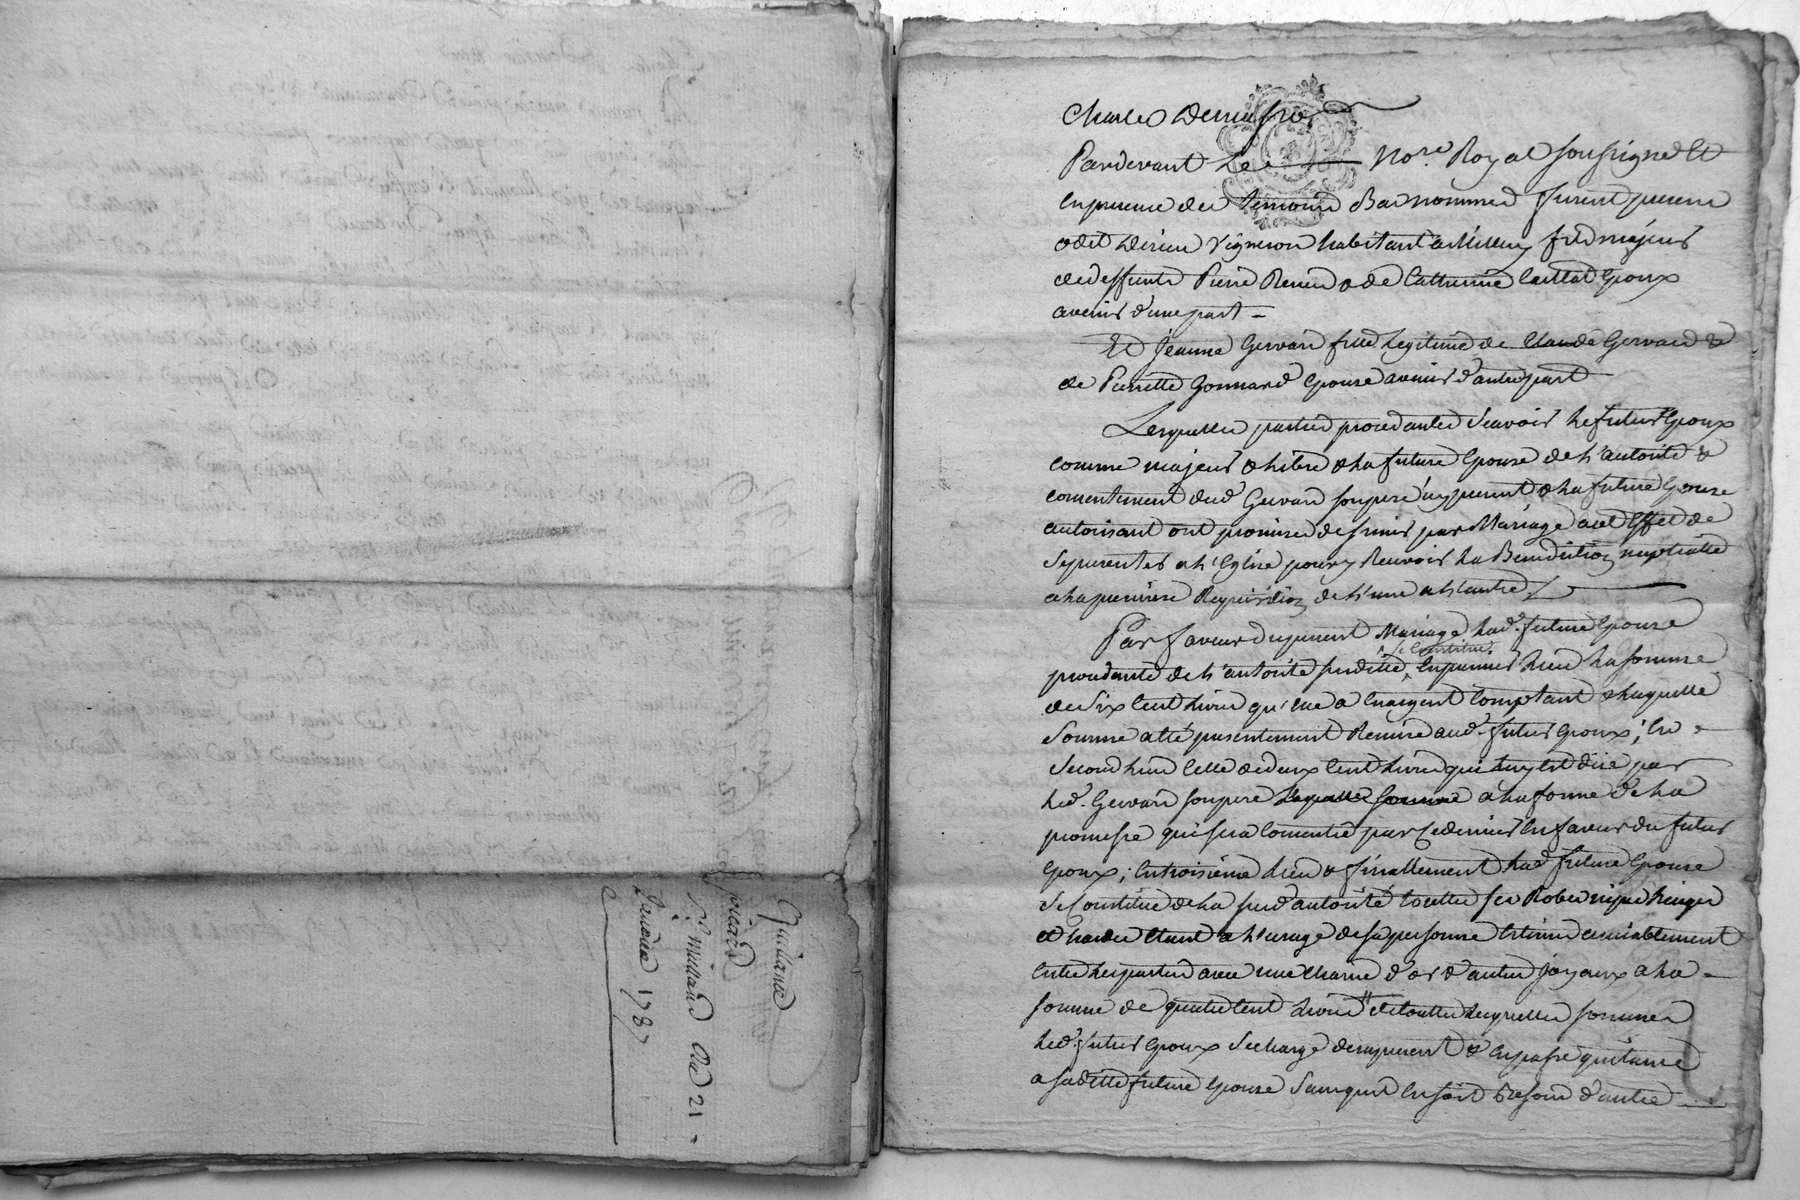 Quittance
St. Mriard du 21
Janvier 1787
Charles
Pardevant Le Nore. Royal soussigné Et
En presence des temoins Bas nommés furent presens
Vigneron habitant à Millery fils majeur
de deffunts Pierre & de Catherine Epoux
avenir d'une part
Et Jeanne Gervais fille Legitime de Claude Gervais &
de Pierrette Gonnard Epouse avenir d'autre part
Lesquelles parties procedantes Sçavoir Le futur Epoux
comme majeur & libre & la future Epouse de L'autorité &
consentement dud. Gervais son pere à present & la future Epouse
autorisant ont promis de s'unir par Mariage a cet Effet de
Se presenter a L'Eglise pour y Recevoir La Benediction nuptialle
a la premiere Requisition de L'une a L'autre
Par faveur du present Mariage lad. future Epouse
se Constitue
procedante de L'autorité susditte, En premier Lieu La somme
de Six Cent Livres qu'elle a En argent Comptant & laquelle
Somme a été presentement Remise aud. futur Epoux; En
Second Lieu Celle de deux Cent Livres qui luy Est düe par
led. Gervais son pere Laquelle Somme a la forme de La
promesse qui sera Consentie par Ce dernier En faveur du futur
Epoux; En troisieme Lieu & finallement lad. future Epouse
Se Constitue de La susd. autorité touttes ses Robes nipes Linges
et hardes Etant a L'usage de sa personne Estimés amiablement
Entre Les parties avec une Chaine d'or & d'autres joyaux a La
somme de quatre Cent Livres de touttes Lesquelles sommes
Led. futur Epoux Se charge des apresent & En passe quittance
a sa ditte future Epouse Sans qu'il En soit Besoin d'autre